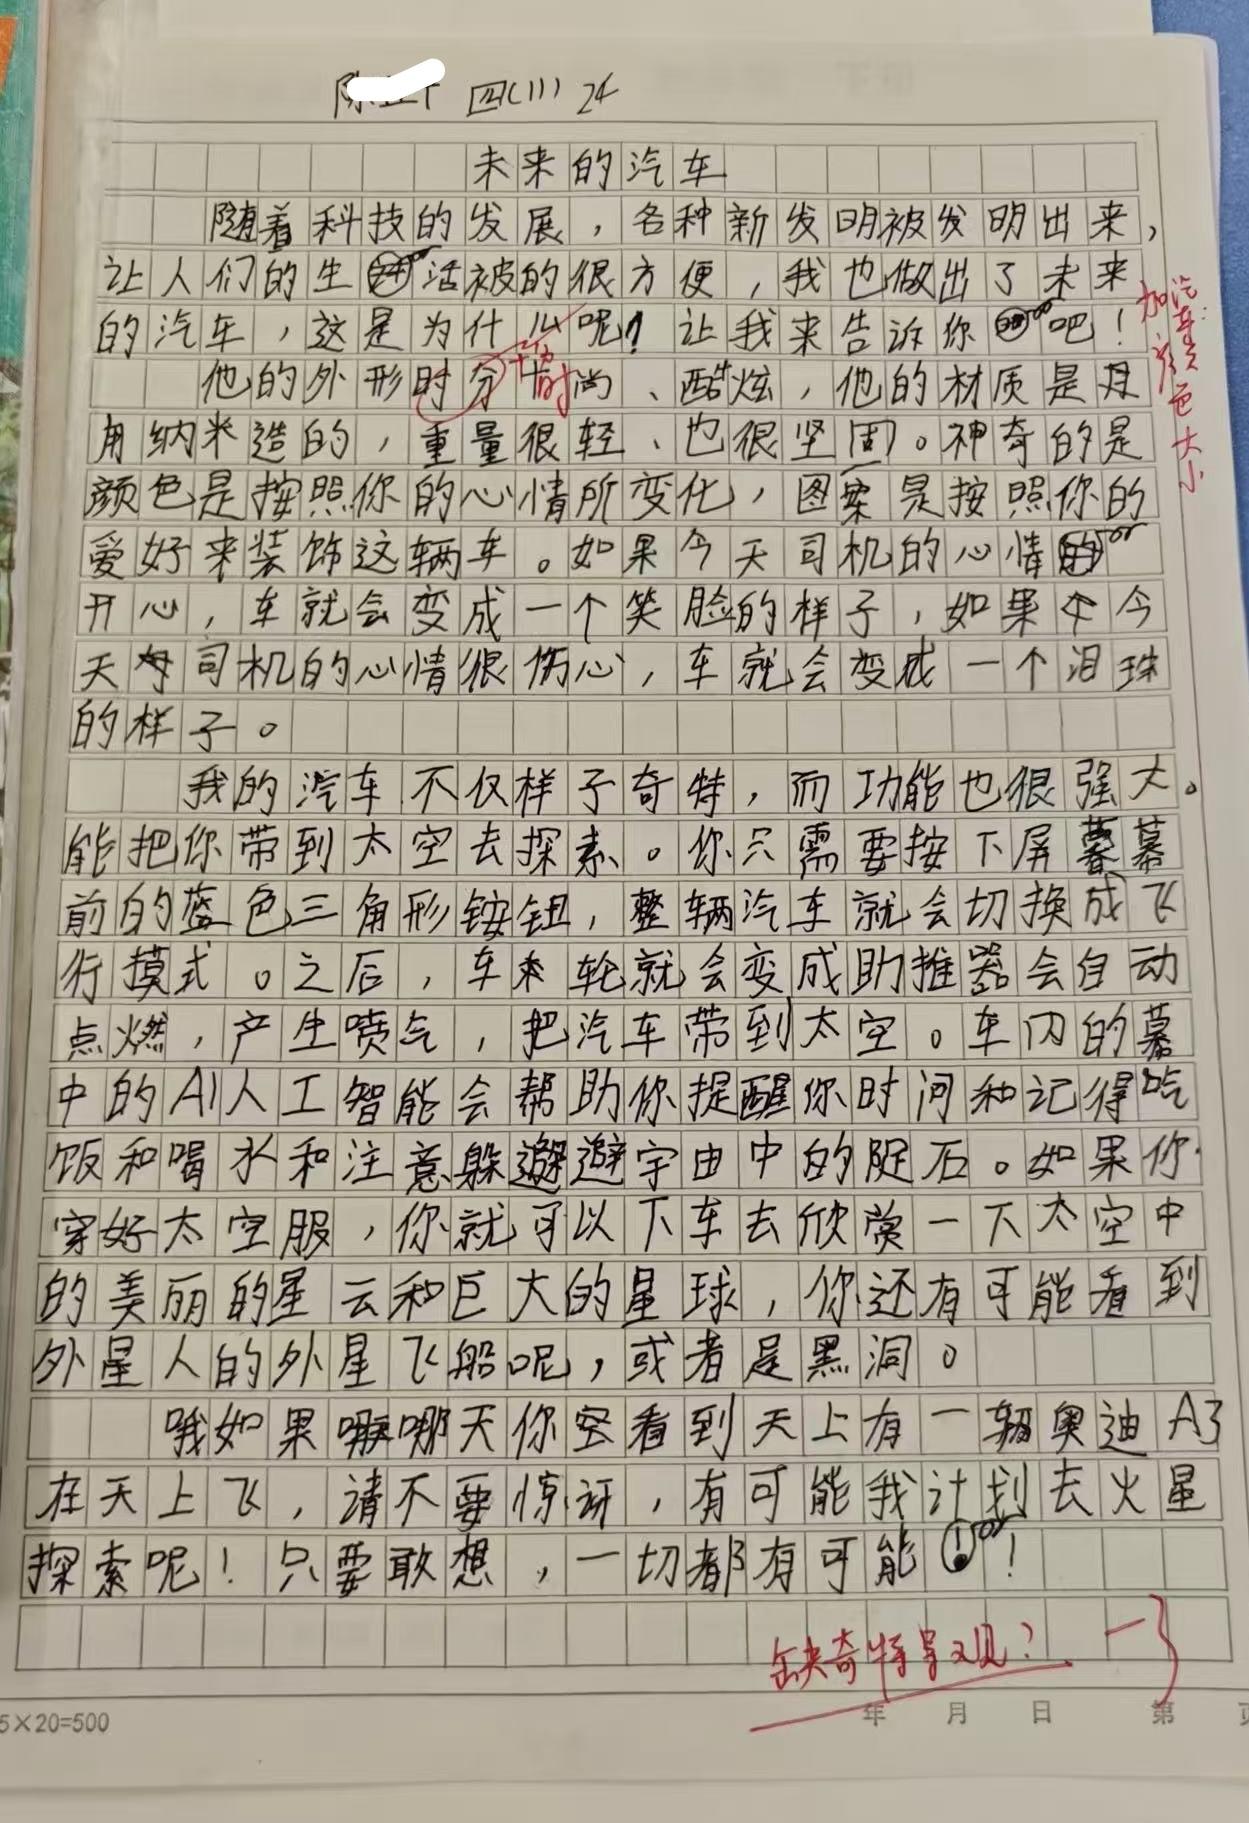 陈 四(11) 24
未来的汽车
随着科技的发展，各种新发明被发明出来，
让人们的生活被的很方便，我也做出了未来
的汽车，这是为什么呢？让我来告诉你吧！
他的外形时分十分时尚、酷炫，他的材质是
用纳米造的，重量很轻、也很坚固。神奇的是
颜色是按照你的心情所变化，图案是按照你的
爱好来装饰这辆车。如果今天司机的心情
开心，车就会变成一个笑脸的样子，如果今
天司机的心情很伤心，车就会变成一个泪珠
的样子。
我的汽车不仅样子奇特，而功能也很强大。
能把你带到太空去探索。你只需要按下屏幕
前的蓝色三角形铵钮，整辆汽车就会切换成飞
行摸式。之后，车轮就会变成助推器会自动
点燃，产生喷气，把汽车带到太空。车内的幕
中的AI人工智能会帮助你提醒你时间和记得吃
饭和喝水和注意躲避宇由中的陨石。如果你
穿好太空服，你就可以下车去欣赏一下太空中
的美丽的星云和巨大的星球，你还有可能看到
外星人的外星飞船呢，或者是黑洞。
哦如果哪天你空看到天上有一辆奥迪A3
在天上飞，请不要惊讶，有可能我计划去火星
探索呢！只要敢想，一切都有可能！
加汽车：
颜色大小
缺奇特导观？
5×20=500
年 月 日 第 页